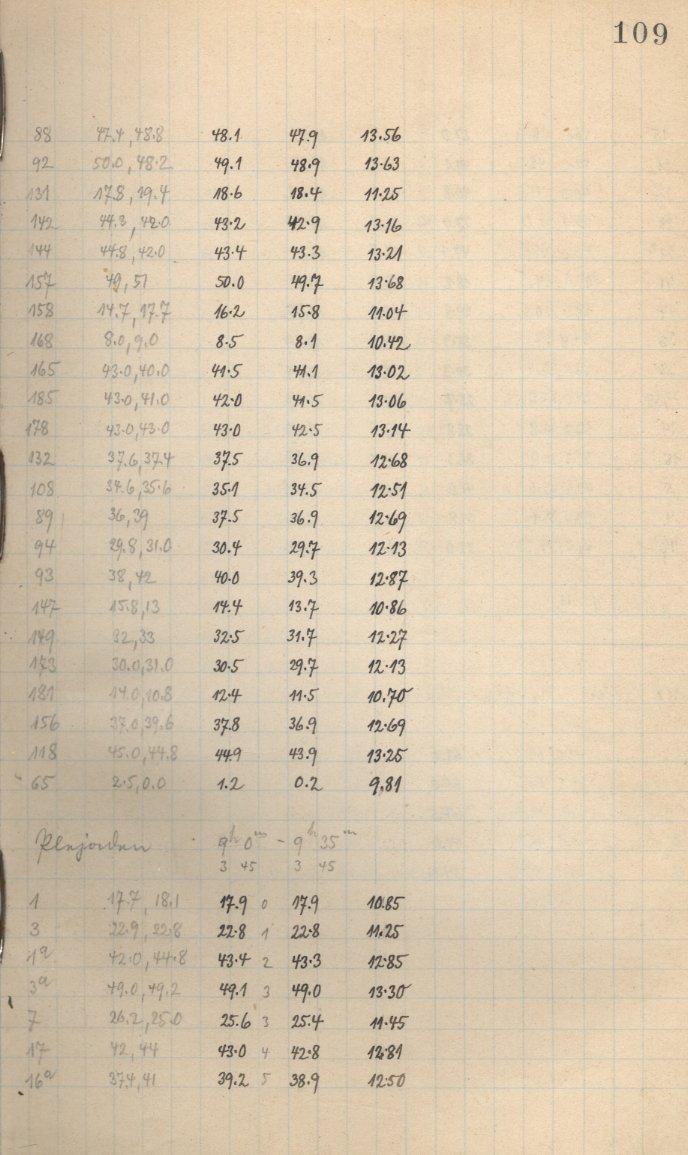 109
88 47.4, 48.8 48.1 47.9 13.56
92 50.0, 48.2 49.1 48.9 13.63
131 17.8, 19.4 18.6 18.4 11.25
142 44.3, 42.0 43.2 42.9 13.16
144 44.8, 42.0 43.4 43.3 13.21
157 49, 51 50.0 49.7 13.68
158 14.7, 17.7 16.2 15.8 11.04
168 8.0, 9.0 8.5 8.1 10.42
165 43.0, 40.0 41.5 41.1 13.02
185 43.0, 41.0 42.0 41.5 13.06
178 43.0, 43.0 43.0 42.5 13.14
132 37.6, 37.4 37.5 36.9 12.68
108 34.6, 35.6 35.1 34.5 12.51
89 36, 39 37.5 36.9 12.69
94 29.8, 31.0 30.4 29.7 12.13
93 38, 42 40.0 39.3 12.87
147 15.8, 13 14.4 13.7 10.86
149 32, 33 32.5 31.7 12.27
173 30.0, 31.0 30.5 29.7 12.13
181 14.0, 10.8 12.4 11.5 10.70
156 37.0, 39.6 37.8 36.9 12.69
118 45.0, 44.8 44.9 43.9 13.25
65 2.5, 0.0 1.2 0.2 9.81
Plejaden 9h 0m - 9h 35m
3 45 3 45
1 17.7, 18.1 17.9 0 17.9 10.85
3 22.9, 22.8 22.8 1 22.8 11.25
1a 42.0, 44.8 43.4 2 43.3 12.85
3a 49.0, 49.2 49.1 3 49.0 13.30
7 26.2, 25.0 25.6 3 25.4 11.45
17 42, 44 43.0 4 42.8 12.81
16a 37.4, 41 39.2 5 38.9 12.50